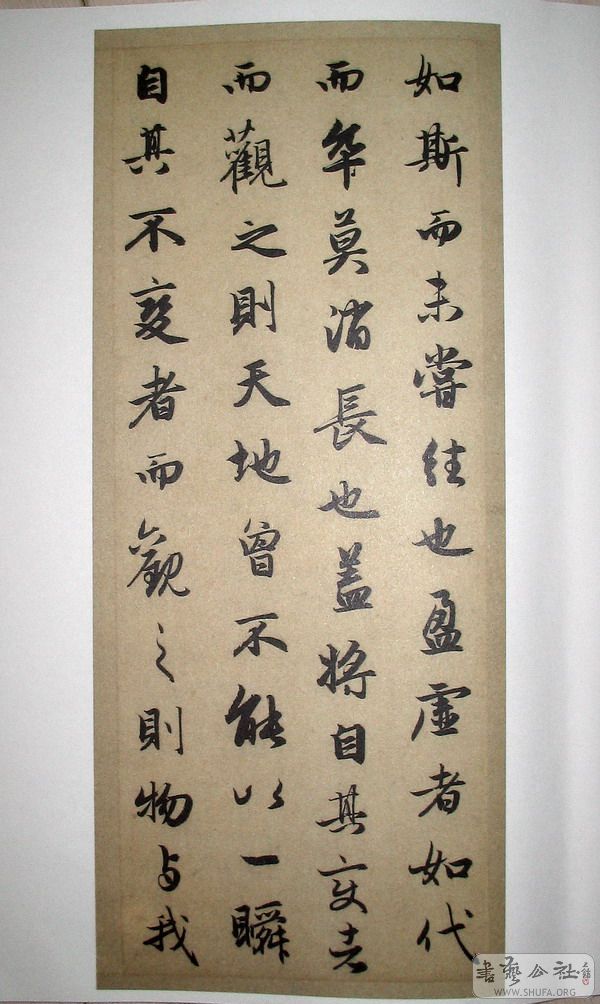 如斯而未嘗往也盈虛者如代
而卒莫消長也蓋將自其變者
而觀之則天地曾不能以一瞬
自其不變者而觀之則物与我
書藝公社
WWW.SHUFA.ORG